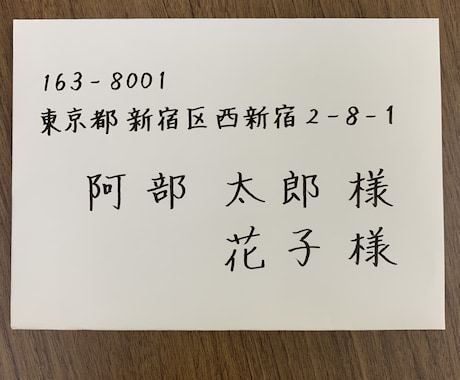 163-8001
東京都新宿区西新宿2-8-1
阿部 太郎 様
花子 様